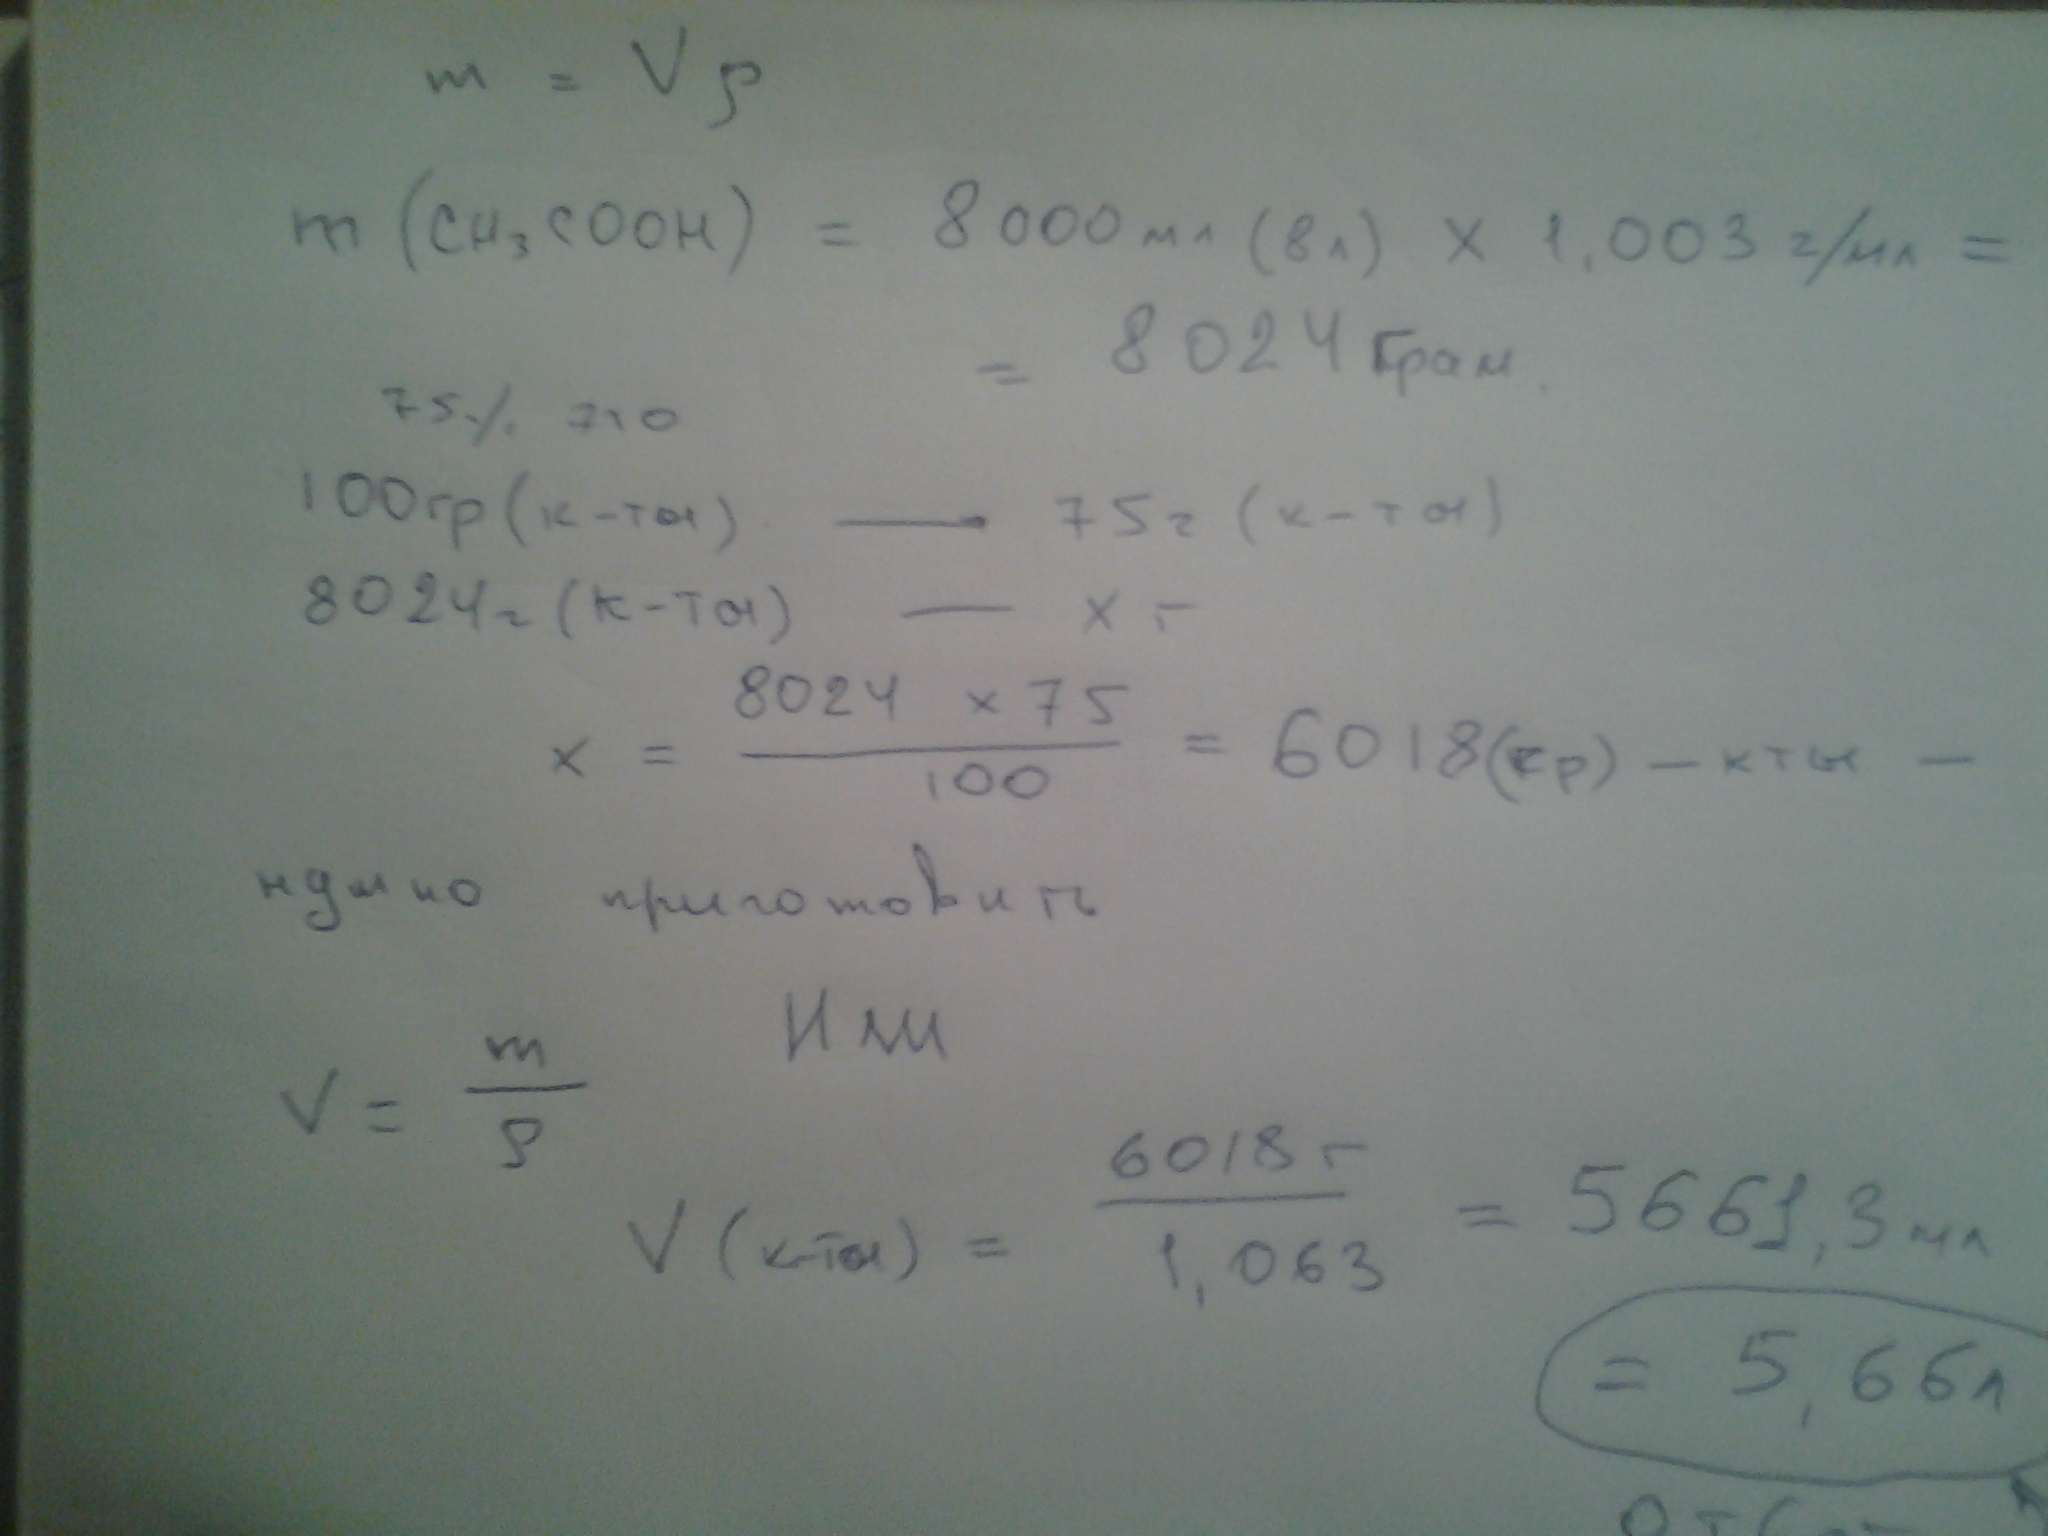 m = Vρ
m (CH₃COOH) = 8000 мл (8 л) x 1,003 г/мл =
= 8024 Грам.
75% это
100гр (к-ты) — 75г (к-ты)
8024г (к-ты) — x г
x = 8024 x 75 / 100 = 6018 (гр) – кты –
нужно приготовить
Или
V = m / ρ
V (к-ты) = 6018 г / 1,063 = 5661,3 мл
= 5,66л